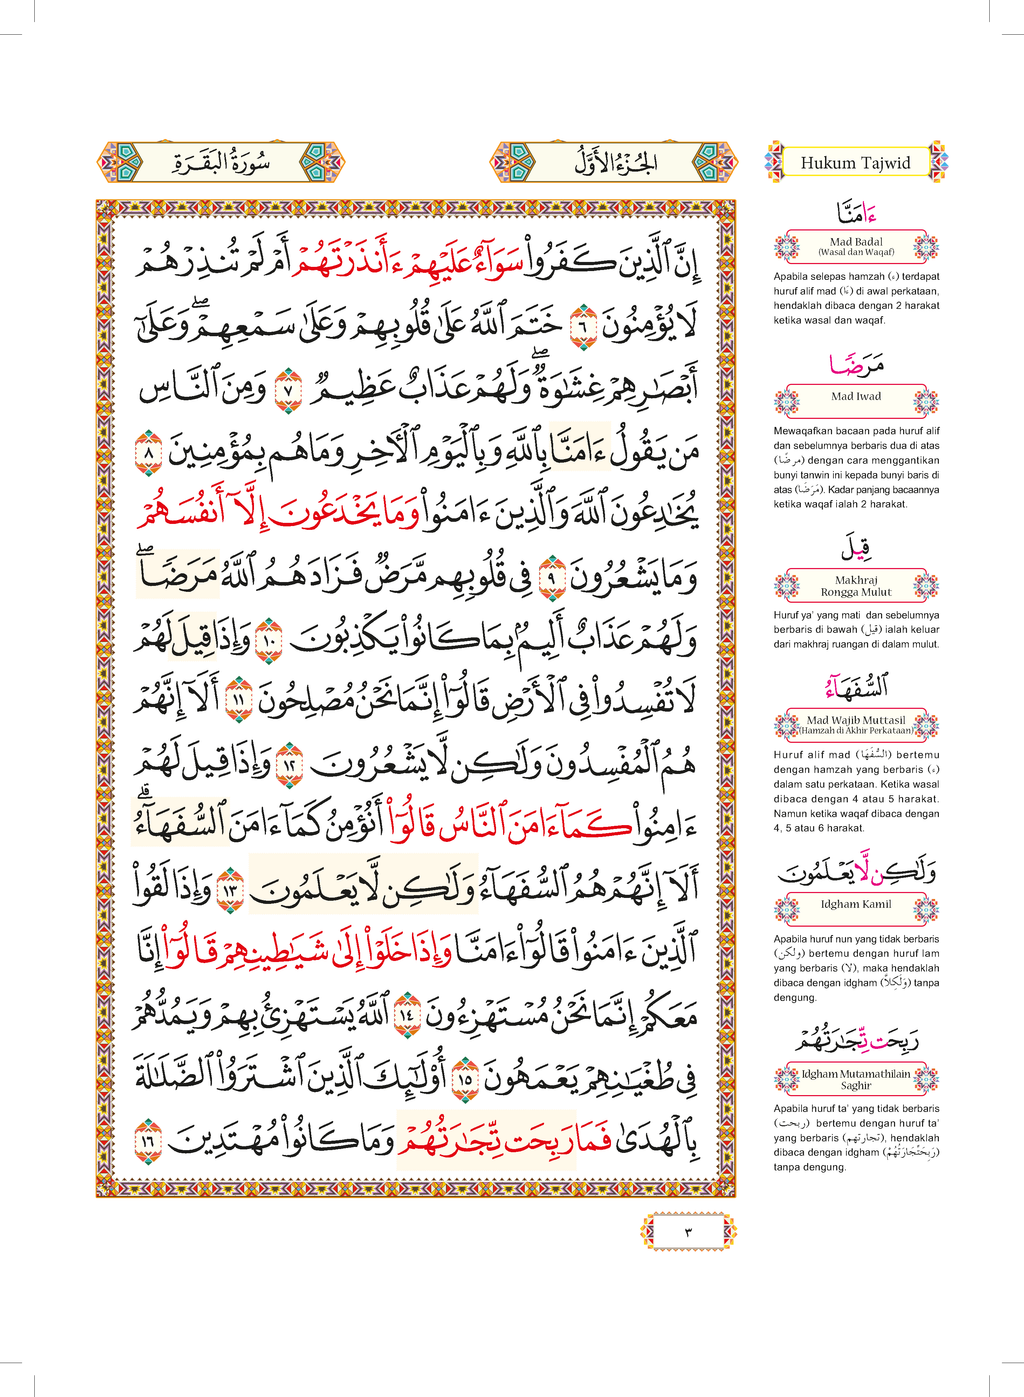 سُورَةُ البَقَرَةِ
الجُزْءُ الأَوَّلُ
إِنَّ ٱلَّذِينَ كَفَرُوا۟ سَوَآءٌ عَلَيْهِمْ ءَأَنذَرْتَهُمْ أَمْ لَمْ تُنذِرْهُمْ
لَا يُؤْمِنُونَ ٦ خَتَمَ ٱللَّهُ عَلَىٰ قُلُوبِهِمْ وَعَلَىٰ سَمْعِهِمْ ۖ وَعَلَىٰٓ
أَبْصَٰرِهِمْ غِشَٰوَةٌ ۖ وَلَهُمْ عَذَابٌ عَظِيمٌ ٧ وَمِنَ ٱلنَّاسِ
مَن يَقُولُ ءَامَنَّا بِٱللَّهِ وَبِٱلْيَوْمِ ٱلْءَاخِرِ وَمَا هُم بِمُؤْمِنِينَ ٨
يُخَٰدِعُونَ ٱللَّهَ وَٱلَّذِينَ ءَامَنُوا۟ وَمَا يَخْدَعُونَ إِلَّآ أَنفُسَهُمْ
وَمَا يَشْعُرُونَ ٩ فِى قُلُوبِهِم مَّرَضٌ فَزَادَهُمُ ٱللَّهُ مَرَضًا ۖ
وَلَهُمْ عَذَابٌ أَلِيمٌۢ بِمَا كَانُوا۟ يَكْذِبُونَ ١٠ وَإِذَا قِيلَ لَهُمْ
لَا تُفْسِدُوا۟ فِى ٱلْأَرْضِ قَالُوٓا۟ إِنَّمَا نَحْنُ مُصْلِحُونَ ١١ أَلَآ إِنَّهُمْ
هُمُ ٱلْمُفْسِدُونَ وَلَٰكِن لَّا يَشْعُرُونَ ١٢ وَإِذَا قِيلَ لَهُمْ
ءَامِنُوا۟ كَمَآ ءَامَنَ ٱلنَّاسُ قَالُوٓا۟ أَنُؤْمِنُ كَمَآ ءَامَنَ ٱلسُّفَهَآءُ ۗ
أَلَآ إِنَّهُمْ هُمُ ٱلسُّفَهَآءُ وَلَٰكِن لَّا يَعْلَمُونَ ١٣ وَإِذَا لَقُوا۟
ٱلَّذِينَ ءَامَنُوا۟ قَالُوٓا۟ ءَامَنَّا وَإِذَا خَلَوْا۟ إِلَىٰ شَيَٰطِينِهِمْ قَالُوٓا۟ إِنَّا
مَعَكُمْ إِنَّمَا نَحْنُ مُسْتَهْزِءُونَ ١٤ ٱللَّهُ يَسْتَهْزِئُ بِهِمْ وَيَمُدُّهُمْ
فِى طُغْيَٰنِهِمْ يَعْمَهُونَ ١٥ أُو۟لَٰٓئِكَ ٱلَّذِينَ ٱشْتَرَوُا۟ ٱلضَّلَٰلَةَ
بِٱلْهُدَىٰ فَمَا رَبِحَت تِّجَٰرَتُهُمْ وَمَا كَانُوا۟ مُهْتَدِينَ ١٦
٣
Hukum Tajwid
ءَامَنَّا
Mad Badal
(Wasal dan Waqaf)
Apabila selepas hamzah (ء) terdapat
huruf alif mad (ءَا) di awal perkataan,
hendaklah dibaca dengan 2 harakat
ketika wasal dan waqaf.
مَرَضًا
Mad Iwad
Mewaqafkan bacaan pada huruf alif
dan sebelumnya berbaris dua di atas
(مرضًا) dengan cara menggantikan
bunyi tanwin ini kepada bunyi baris di
atas (مَرَضَا). Kadar panjang bacaannya
ketika waqaf ialah 2 harakat.
قِيلَ
Makhraj
Rongga Mulut
Huruf ya' yang mati dan sebelumnya
berbaris di bawah (قيل) ialah keluar
dari makhraj ruangan di dalam mulut.
ٱلسُّفَهَآءُ
Mad Wajib Muttasil
(Hamzah di Akhir Perkataan)
Huruf alif mad (السُّفَهَا) bertemu
dengan hamzah yang berbaris (ء)
dalam satu perkataan. Ketika wasal
dibaca dengan 4 atau 5 harakat.
Namun ketika waqaf dibaca dengan
4, 5 atau 6 harakat.
وَلَٰكِن لَّا يَعْلَمُونَ
Idgham Kamil
Apabila huruf nun yang tidak berbaris
(ولكن) bertemu dengan huruf lam
yang berbaris (لا), maka hendaklah
dibaca dengan idgham (وَلَكِلَّا) tanpa
dengung.
رَبِحَت تِّجَٰرَتُهُمْ
Idgham Mutamathilain
Saghir
Apabila huruf ta' yang tidak berbaris
(ربحت) bertemu dengan huruf ta'
yang berbaris (تجارتهم), hendaklah
dibaca dengan idgham (رَبِحَتِّجَارَتُهُمْ)
tanpa dengung.